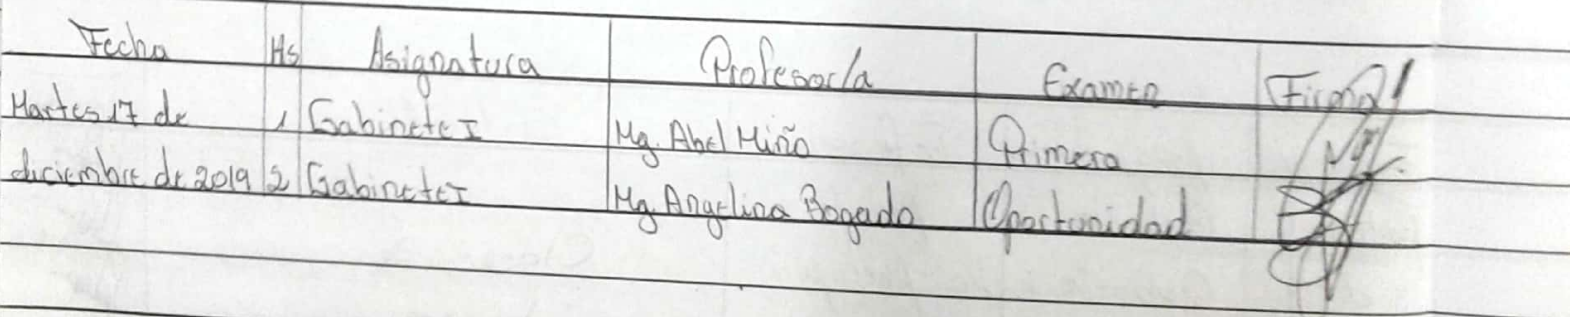 Fecha Hs Asignatura Profesor/a Examen Firma
Martes 17 de 1 Gabinete I Mg. Abel Miño Primera
diciembre de 2019 2 Gabinete I Mg Angelina Bogado Oportunidad